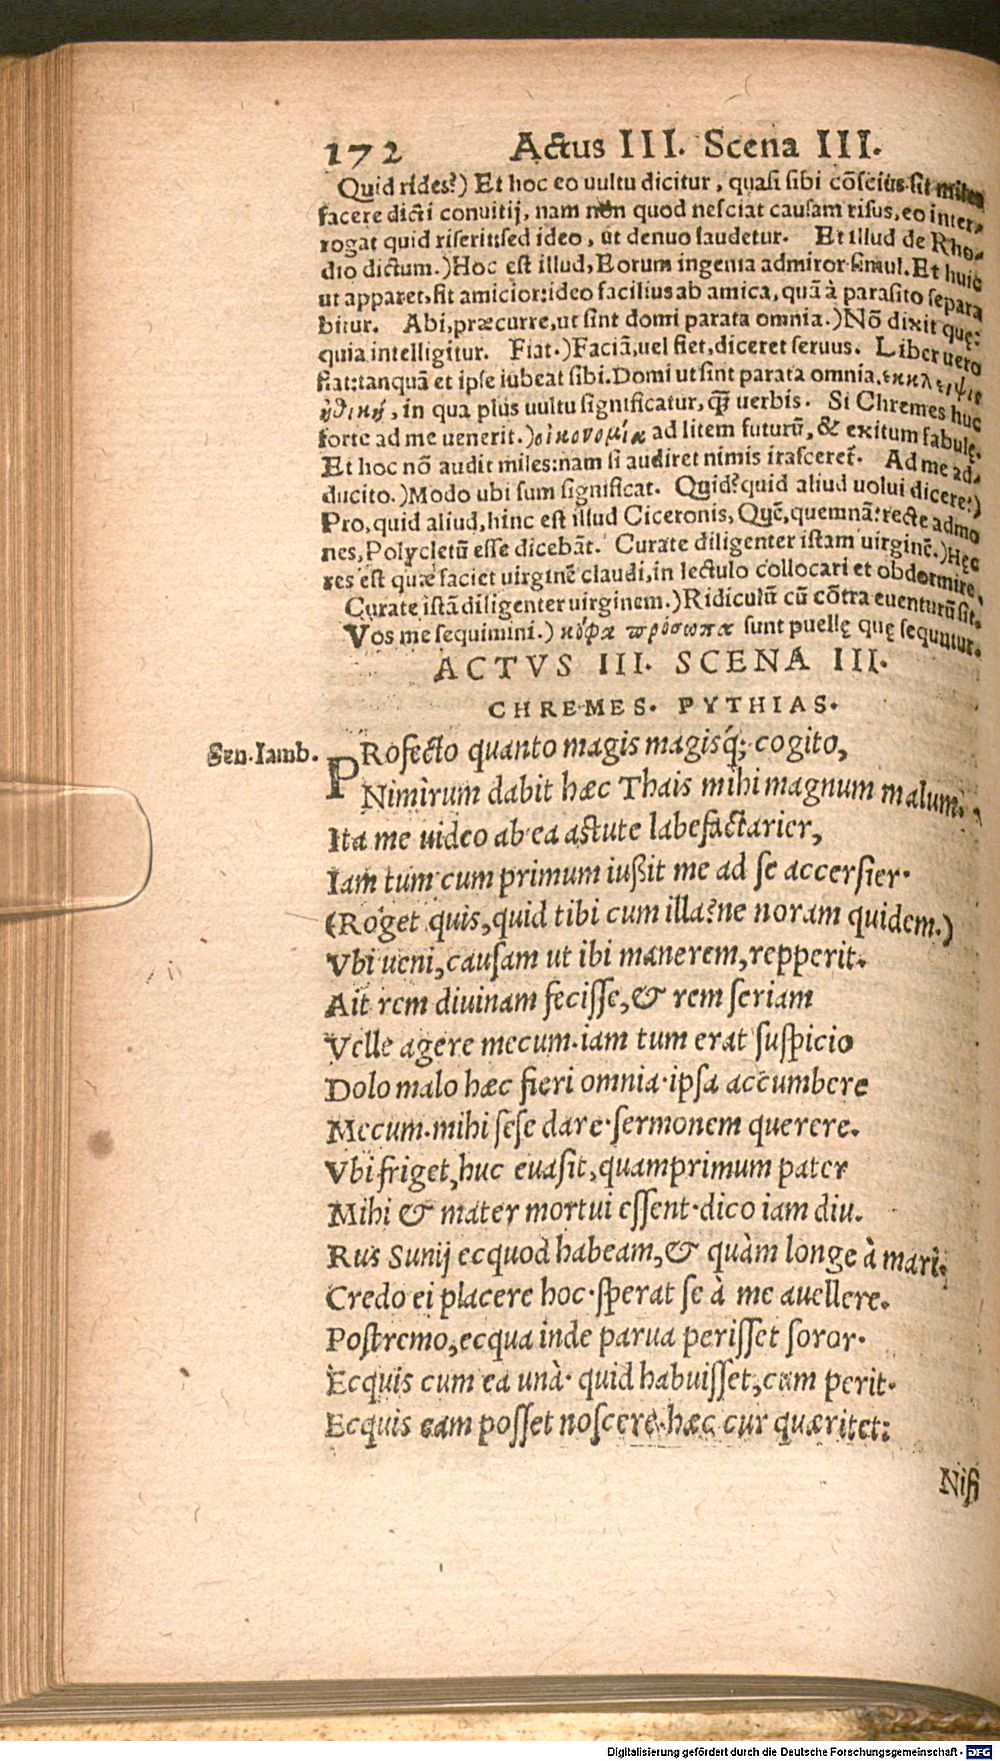 172 Actus III. Scena III.
Quid rides?) Et hoc eo uultu dicitur, quasi sibi cõscius sit miles
facere dicti conuitij, nam non quod nesciat causam risus, eo inter-
rogat quid riserit: sed ideo, ut denuo laudetur. Et illud de Rho-
dio dictum.) Hoc est illud, Eorum ingenia admiror simul. Et huic
ut apparet, sit amicior: ideo facilius ab amica, quã à parasito separa
bitur. Abi, præcurre, ut sint domi parata omnia.) Nõ dixit quę:
quia intelligitur. Fiat.) Faciã, uel fiet, diceret seruus. Liber uero
fiat: tanquã et ipse iubeat sibi. Domi ut sint parata omnia. ἐκκλειψις
ηθικὴ, in qua plus uultu significatur, q̃ uerbis. Si Chremes huc
forte ad me uenerit.) οἰκονομία ad litem futurũ, & exitum fabulę.
Et hoc nõ audit miles: nam si audiret nimis irasceret̃. Ad me ad-
ducito.) Modo ubi sum significat. Quid? quid aliud uolui dicere?)
Pro, quid aliud, hinc est illud Ciceronis, Quẽ, quemnã? recte admo
nes, Polycletũ esse dicebãt. Curate diligenter istam uirginẽ.) Hęc
res est quæ faciet uirginẽ claudi, in lectulo collocari et obdormire.
Curate istã diligenter uirginem.) Ridiculũ cũ cõtra euenturũ sit.
Vos me sequimini.) κόφα πρόσωπα sunt puellę quę sequuntur.
ACTVS III. SCENA III.
CHREMES. PYTHIAS.
Sen. Iamb. PRofecto quanto magis magisq́; cogito,
Nimirum dabit hæc Thais mihi magnum malum:
Ita me uideo ab ea astute labefactarier,
Iam tum cum primum iußit me ad se accersier.
(Roget quis, quid tibi cum illa? ne noram quidem.)
Vbi ueni, causam ut ibi manerem, repperit.
Ait rem diuinam fecisse, & rem seriam
Velle agere mecum. iam tum erat suspicio
Dolo malo hæc fieri omnia. ipsa accumbere
Mecum. mihi sese dare. sermonem querere.
Vbi friget, huc euasit, quamprimum pater
Mihi & mater mortui essent. dico iam diu.
Rus Sunij ecquod habeam, & quàm longe à mari.
Credo ei placere hoc. sperat se à me auellere.
Postremo, ecqua inde parua perisset soror.
Ecquis cum ea unà. quid habuisset, cum perit.
Ecquis eam posset noscere. hæc cur quæritet:
Nisi
Digitalisierung gefördert durch die Deutsche Forschungsgemeinschaft - DFG